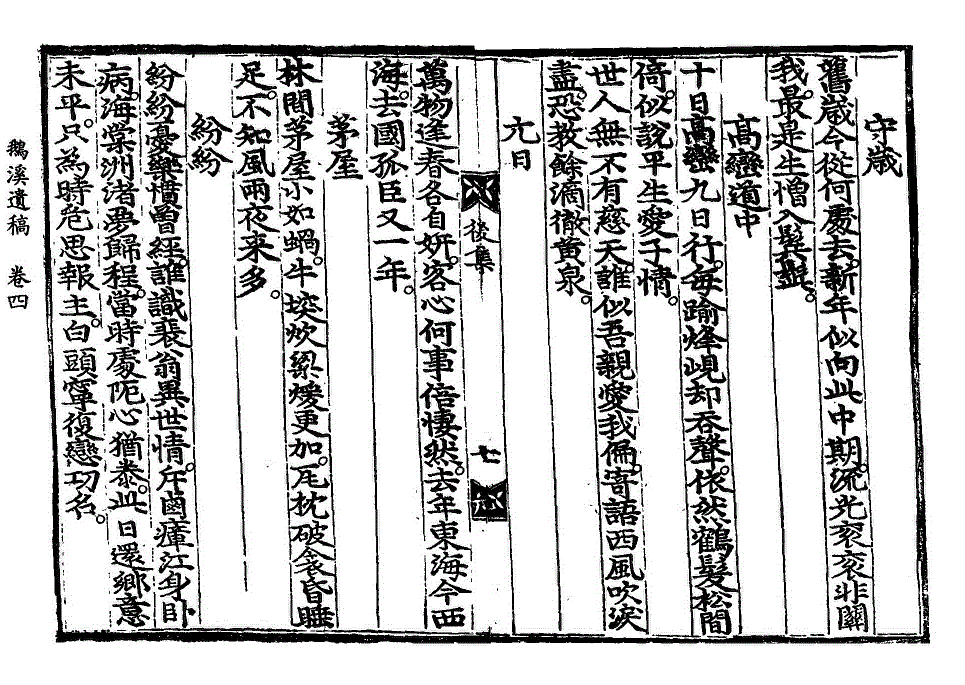 守歲
舊歲今從何處去。新年似向此中期。流光袞袞非關
我。最是生憎入鬂毿。
高巒道中
十日高巒九日行。每踰烽峴却吞聲。依然鶴髮松間
倚。似說平生愛子情。
世人無不有慈天。誰似吾親愛我偏。寄語西風吹淚
盡。恐敎餘滴徹黃泉。
元日
萬物逢春各自姸。客心何事倍悽然。去年東海今西
海。去國孤臣又一年。
後集
七
茅屋
林間茅屋小如蝸。牛埃炊粱煖更加。瓦枕破衾昏睡
足。不知風雨夜來多。
紛紛
紛紛憂樂慣曾經。誰識衰翁異世情。斥鹵瘴江身卧
病。海棠洲渚夢歸程。當時處阨心猶泰。此日還鄉意
未平。只爲時危思報主。白頭寧復戀功名。
鵝溪遺稿　卷四